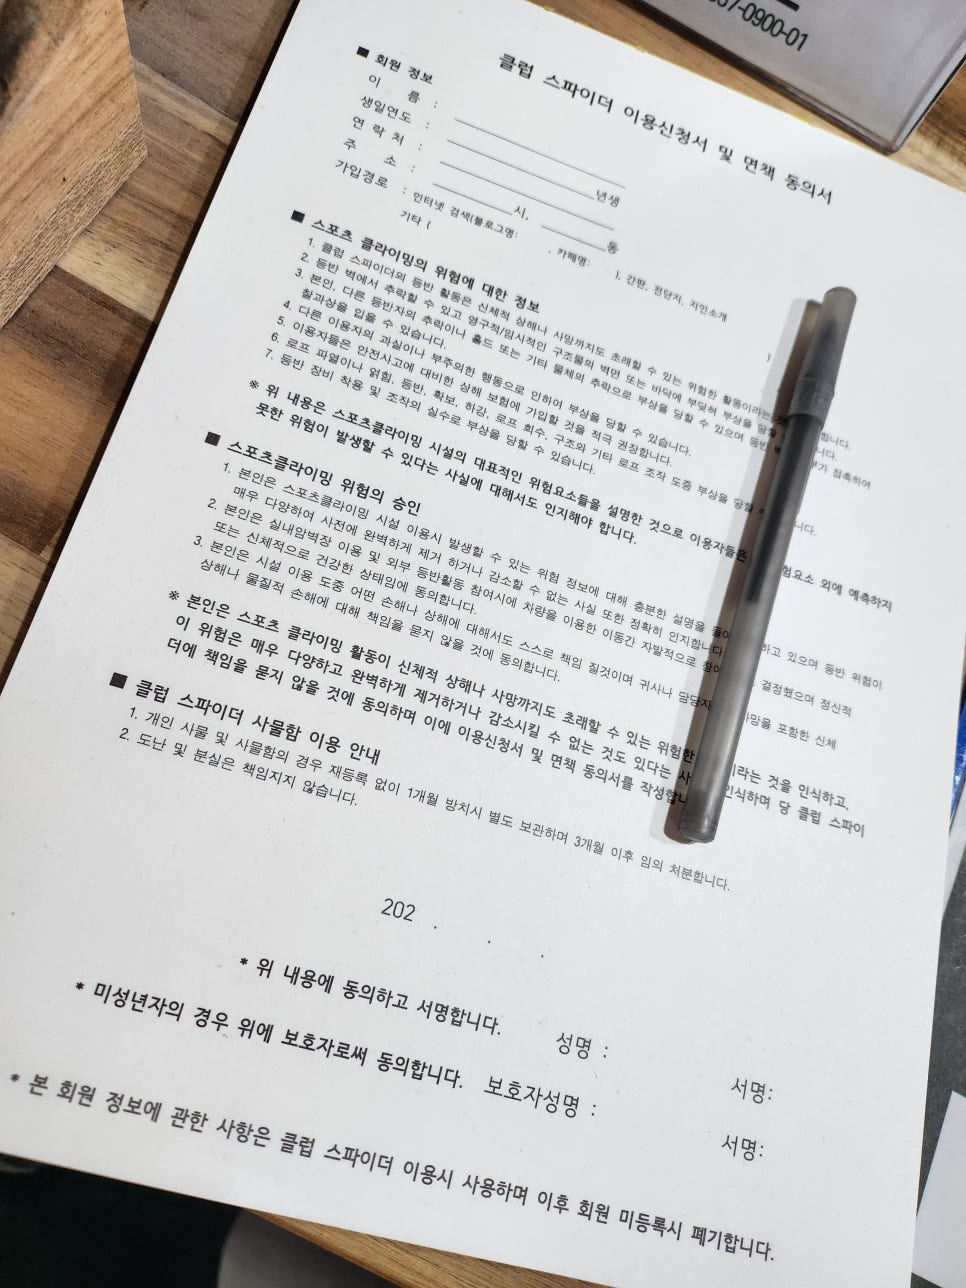 37-0900-01
클럽 스파이더 이용신청서 및 면책 동의서
■ 회원 정보
이 름 :
생일연도 : 년생
연 락 처 :
주 소 : 시, 동
가입경로 : 인터넷 검색(블로그명: , 카페명: ), 간판, 전단지, 지인소개
기타 ( )
■ 스포츠 클라이밍의 위험에 대한 정보
1. 클럽 스파이더의 등반 활동은 신체적 상해나 사망까지도 초래할 수 있는 위험한 활동이라는
2. 등반 벽에서 추락할 수 있고 영구적/임시적인 구조물의 벽면 또는 바닥에 부딪혀 부상을 당할
3. 본인, 다른 등반자의 추락이나 홀드 또는 기타 물체의 추락으로 부상을 당할 수 있으며 등반 접촉하여
찰과상을 입을 수 있습니다.
4. 다른 이용자의 과실이나 부주의한 행동으로 인하여 부상을 당할 수 있습니다.
5. 이용자들은 안전사고에 대비한 상해 보험에 가입할 것을 적극 권장합니다.
6. 로프 파열이나 얽힘, 등반, 확보, 하강, 로프 회수, 구조와 기타 로프 조작 도중 부상을 당할
7. 등반 장비 착용 및 조작의 실수로 부상을 당할 수 있습니다.
※ 위 내용은 스포츠클라이밍 시설의 대표적인 위험요소들을 설명한 것으로 이용자들은 험요소 외에 예측하지
못한 위험이 발생할 수 있다는 사실에 대해서도 인지해야 합니다.
■ 스포츠클라이밍 위험의 승인
1. 본인은 스포츠클라이밍 시설 이용시 발생할 수 있는 위험 정보에 대해 충분한 설명을 하고 있으며 등반 위험이
매우 다양하여 사전에 완벽하게 제거 하거나 감소할 수 없는 사실 또한 정확히 인지합니다
2. 본인은 실내암벽장 이용 및 외부 등반활동 참여시에 차량을 이용한 이동간 자발적으로 결정했으며 정신적
또는 신체적으로 건강한 상태임에 동의합니다.
3. 본인은 시설 이용 도중 어떤 손해나 상해에 대해서도 스스로 책임 질것이며 귀사나 담당자 망을 포함한 신체
상해나 물질적 손해에 대해 책임을 묻지 않을 것에 동의합니다.
※ 본인은 스포츠 클라이밍 활동이 신체적 상해나 사망까지도 초래할 수 있는 위험한 이라는 것을 인식하고,
이 위험은 매우 다양하고 완벽하게 제거하거나 감소시킬 수 없는 것도 있다는 사 인식하며 당 클럽 스파이
더에 책임을 묻지 않을 것에 동의하며 이에 이용신청서 및 면책 동의서를 작성합니
■ 클럽 스파이더 사물함 이용 안내
1. 개인 사물 및 사물함의 경우 재등록 없이 1개월 방치시 별도 보관하며 3개월 이후 임의 처분합니다.
2. 도난 및 분실은 책임지지 않습니다.
202 . . .
* 위 내용에 동의하고 서명합니다. 성명 : 서명:
* 미성년자의 경우 위에 보호자로써 동의합니다. 보호자성명 : 서명:
* 본 회원 정보에 관한 사항은 클럽 스파이더 이용시 사용하며 이후 회원 미등록시 폐기합니다.